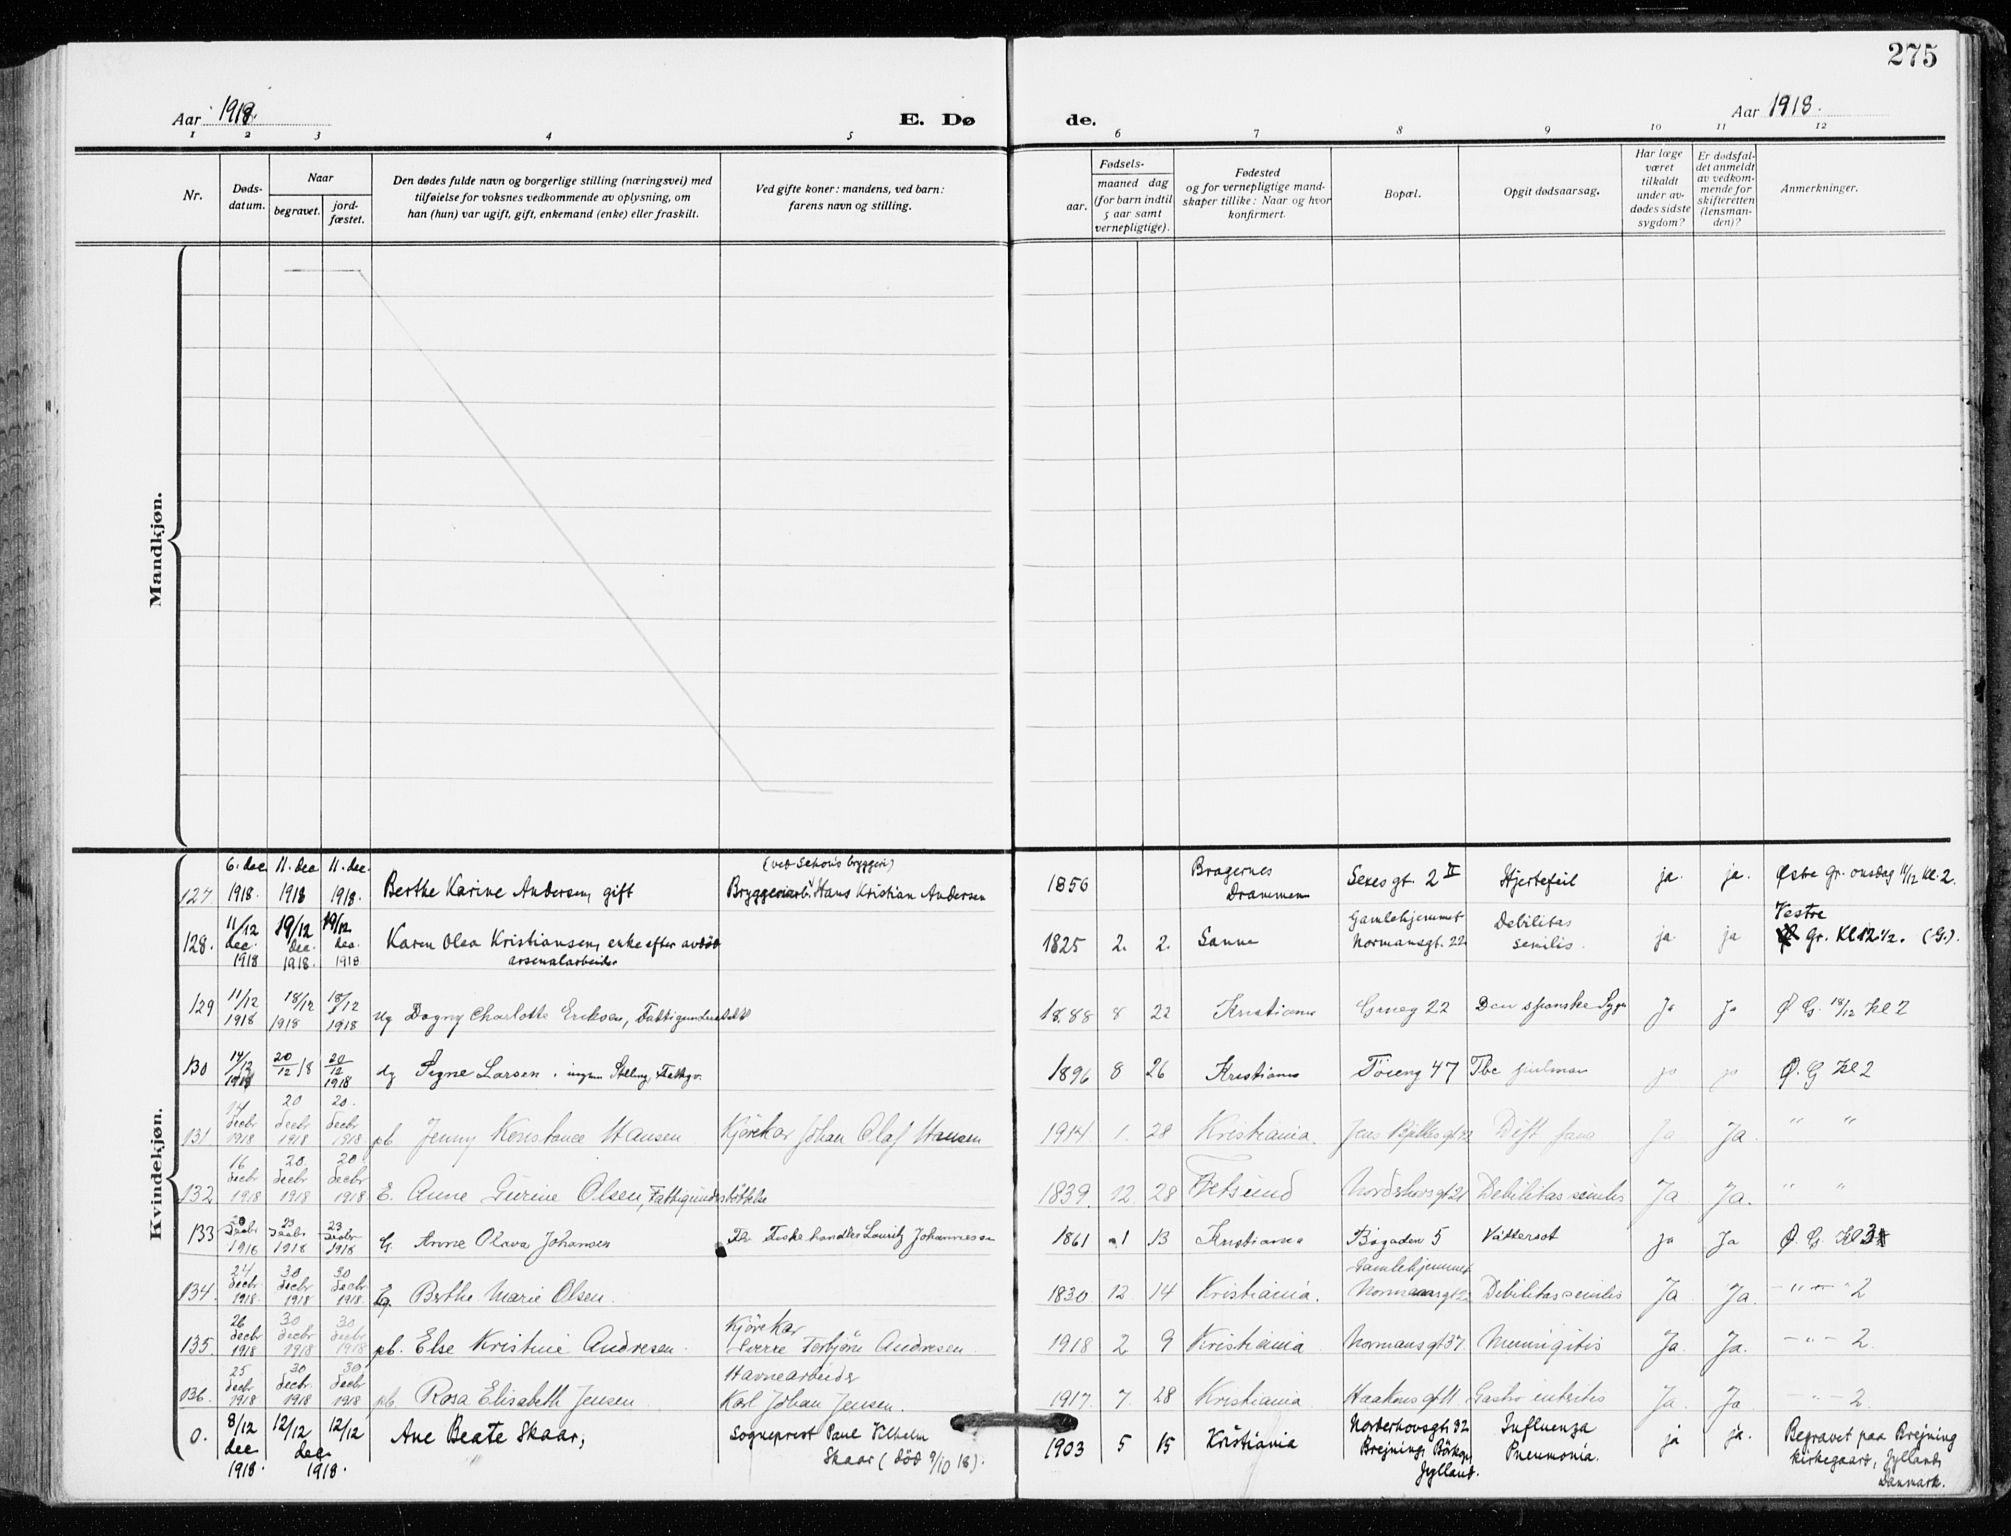 275
Aar 1918.
E. Dø
de.
Aar 1918.
1 2 3 4 5 6 7 8 9 10 11 12
Nr.
Døds-
datum.
Naar
begravet.
jord-
fæstet.
Den dødes fulde navn og borgerlige stilling (næringsvei) med
tilføielse for voksnes vedkommende av oplysning, om
han (hun) var ugift, gift, enkemand (enke) eller fraskilt.
Ved gifte koner: mandens, ved barn:
farens navn og stilling.
Fødsels-
aar.
maaned dag
(for barn indtil
5 aar samt
vernepligtige).
Fødested
og for vernepligtige mand-
skaper tillike: Naar og hvor
konfirmert.
Bopæl.
Opgit dødsaarsag.
Har læge
været
tilkaldt
under av-
dødes sidste
sygdom?
Er dødsfal-
det anmeldt
av vedkom-
mende for
skifteretten
(lensman-
den)?
Anmerkninger.
Mandkjøn.
Kvindekjøn.
127. 6. dec 1918. 11. dec 1918 11. dec. 1918. Berthe Karine Andersen, gift (ved Schous bryggeri) Bryggeriarb. Hans Kristian Andersen 1856 Bragernes Drammen Sexesgt. 2 II Hjertefeil ja. ja. Østre Gr. onsdag 11/12 kl. 2.
128. 11/12 dec. 1918 19/12 dec. 1918. 19/12 dec. 1918 Karen Olea Kristiansen, enke efter avdød arsenalarbeider 1825 2. 2. Sanne Gamlehjemmet Normansgt. 22 Debilitas senilis. ja ja Vestre Gr. Kl 12 1/2. (G.).
129 11/12 1918 18/12 1918 18/12 1918 ug Dagny Charlotte Eriksen, Fattigunderstøttet 1888 8 22 Kristiania 22 Den spanske Syge Ja Ja Ø G. 18/12 Kl 2
130 14/12 1918 20/12 18 20/12 1918 Signe Larsen. ingen Stilling, Fattigv. 1896 8 26 Kristiania Tøieng 47 Tbc pulmon ja ja Ø. G Kl 2
131 14 decbr 1918 20 decbr 1918 20. decbr 1918 pb Jenny Konstance Hansen Kjørekar Johan Olaf Hansen 1914. 1. 28 Kristiania. Jens Bjelkesgt 12 Dift Ja Ja. " "
132 16 decbr 1918 20. decbr 1918 20. decbr 1918 E. Anne Gurine Olsen, Fattigunderstøttelse 1839. 12. 28 Fetsund Nordahovsgt 21 Debilitas senilis Ja Ja. " "
133 20 decbr 1918 23 decbr 1918 23 decbr 1918 G. Anne Olava Johansen Fh. Fiskehandler Lauritz Johannesen 1861 1 13 Kristiania Bøgaden 5 Vattersot ja Ja Ø. G. Kl 3
134. 24 decbr 1918. 30 decbr 1918 30 decbr 1918. Eg. Berthe Marie Olsen. 1830. 12. 14 Kristiania. Gamlehjemmet Normansgt 22 Debilitas senilis Ja Ja. - " - " 2
135. 26 decbr 1918 30 decbr 1918 30 decbr 1918 pb. Else Kristine Andresen. Kjørekar Sverre Torbjørn Andresen. 1918 2 9 Kristiania Normansgt 37. Meningitis Ja. Ja. - " - 2.
136. 25 decbr 1918 30 decbr. 1918 30 decbr 1918 pb. Rosa Elisabeth Jensen. Havnearbeider Karl Johan Jensen. 1917. 7. 28 Kristiania. Haakonsgt 11. Gastro enteritis Ja. Ja - " - 2.
0. 8/12 dec 1918. 12/12 dec 1918. 12/12 Ane Beate Skaar, Sogneprest Paul Vilhelm Skaar (død 9/10 18). 1903 5 15 Kristiania Norderhovsgt. 32 Brejning, Børkop, Jylland. Influenza Pneumonia. ja ja. Begravet paa Brejning kirkegaard, Jylland, Danmark.